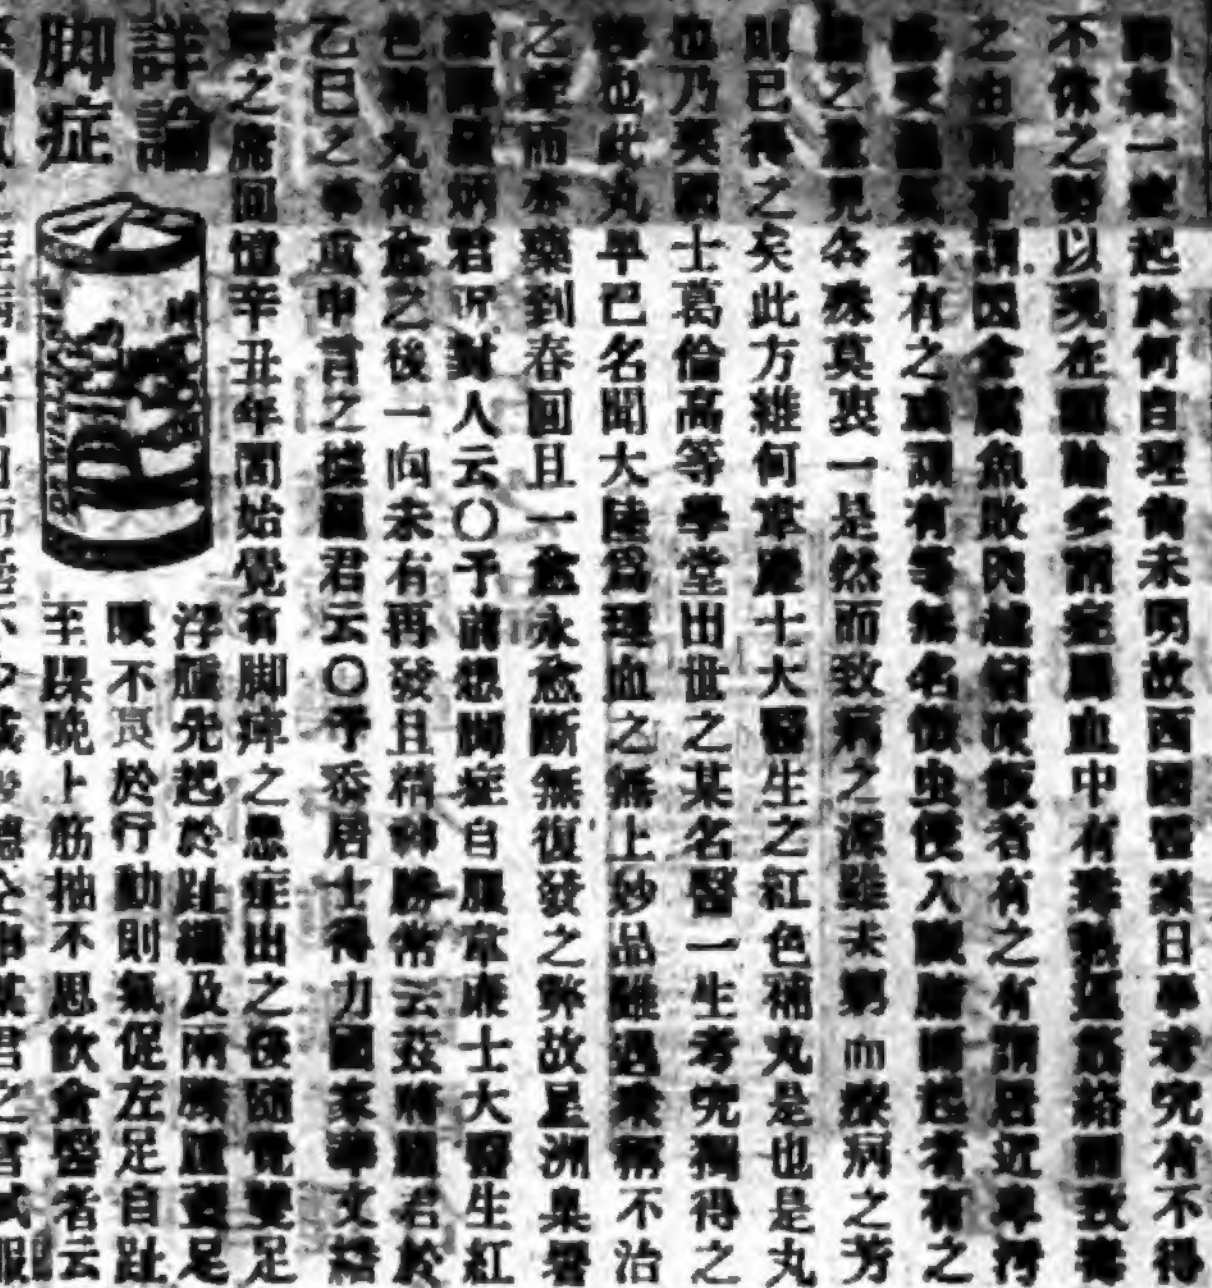 一症起於何自理尚未明故西國醫家日學考究有不得
不休之勢以現在而論多謂症屬血中有毒熱壅筋絡而致
之由則有謂因食腐魚敗肉越宿凍飯者有之有謂居近卑污
感受濕氣者有之或謂有等無名微虫侵入臟腑而起者有之
之意見各殊莫衷一是然而致病之源雖未窮而療病之芳
則已得之矣此方維何韋廉士大醫生之紅色補丸是也是丸
也乃英國士葛倫高等學堂出世之某名醫一生考究獨得之
秘也此丸早已名聞大陸爲理血之無上妙品雖遇棄痾不治
之症而本藥到春回且一愈永愈斷無復發之弊故星洲臬署
繙譯羅炳君對人云〇予前患脚症自服韋廉士大醫生紅
色補丸得愈之後一向未有再發且精神勝常云茲將羅君於
乙巳之事重申言之據羅君云〇予忝居士得力國家華文繙
譯之席回憶辛丑年間始覺有脚痺之患症出之後隨覺雙足
詳論
脚症
浮腫先起於趾繼及兩膝腫重足
眼不良於行動則氣促左足自趾
至踝晚上筋抽不思飲食醫者云